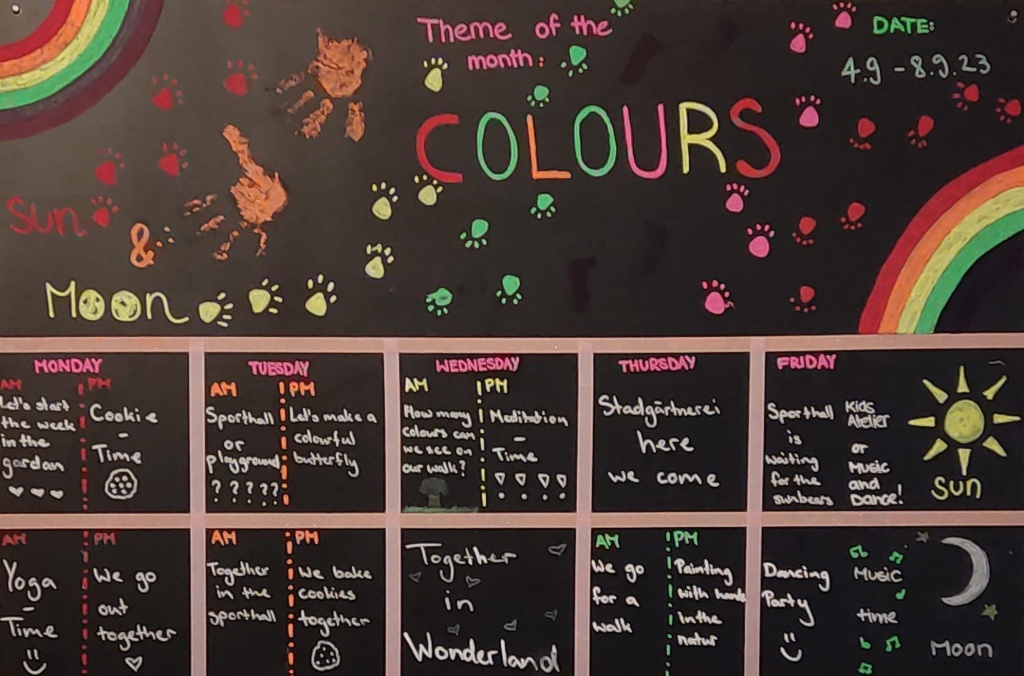 Theme of the
month:
DATE:
4.9 - 8.9.23
COLOURS
Sun
&
Moon
MONDAY
AM
Let's start
the week
in the
gardan
PM
Cookie
-
Time
TUESDAY
AM
Sporthall
or
playground
? ? ? ? ?
PM
Let's make a
colourful
butterfly
WEDNESDAY
AM
How many
colours can
we see on
our walk?
PM
Meditation
-
Time
THURSDAY
Stadgärtnerei
here
we come
FRIDAY
Sporthall
is
waiting
for the
sunbears
Kids
Atelier
or
Music
and
Dance!
Sun
AM
Yoga
-
Time
PM
We go
out
together
AM
Together
in the
sporthall
PM
We bake
cookies
together
Together
in
Wonderland
AM
We go
for a
walk
PM
Painting
with hands
in the
natur
Dancing
Party
Music
time
Moon